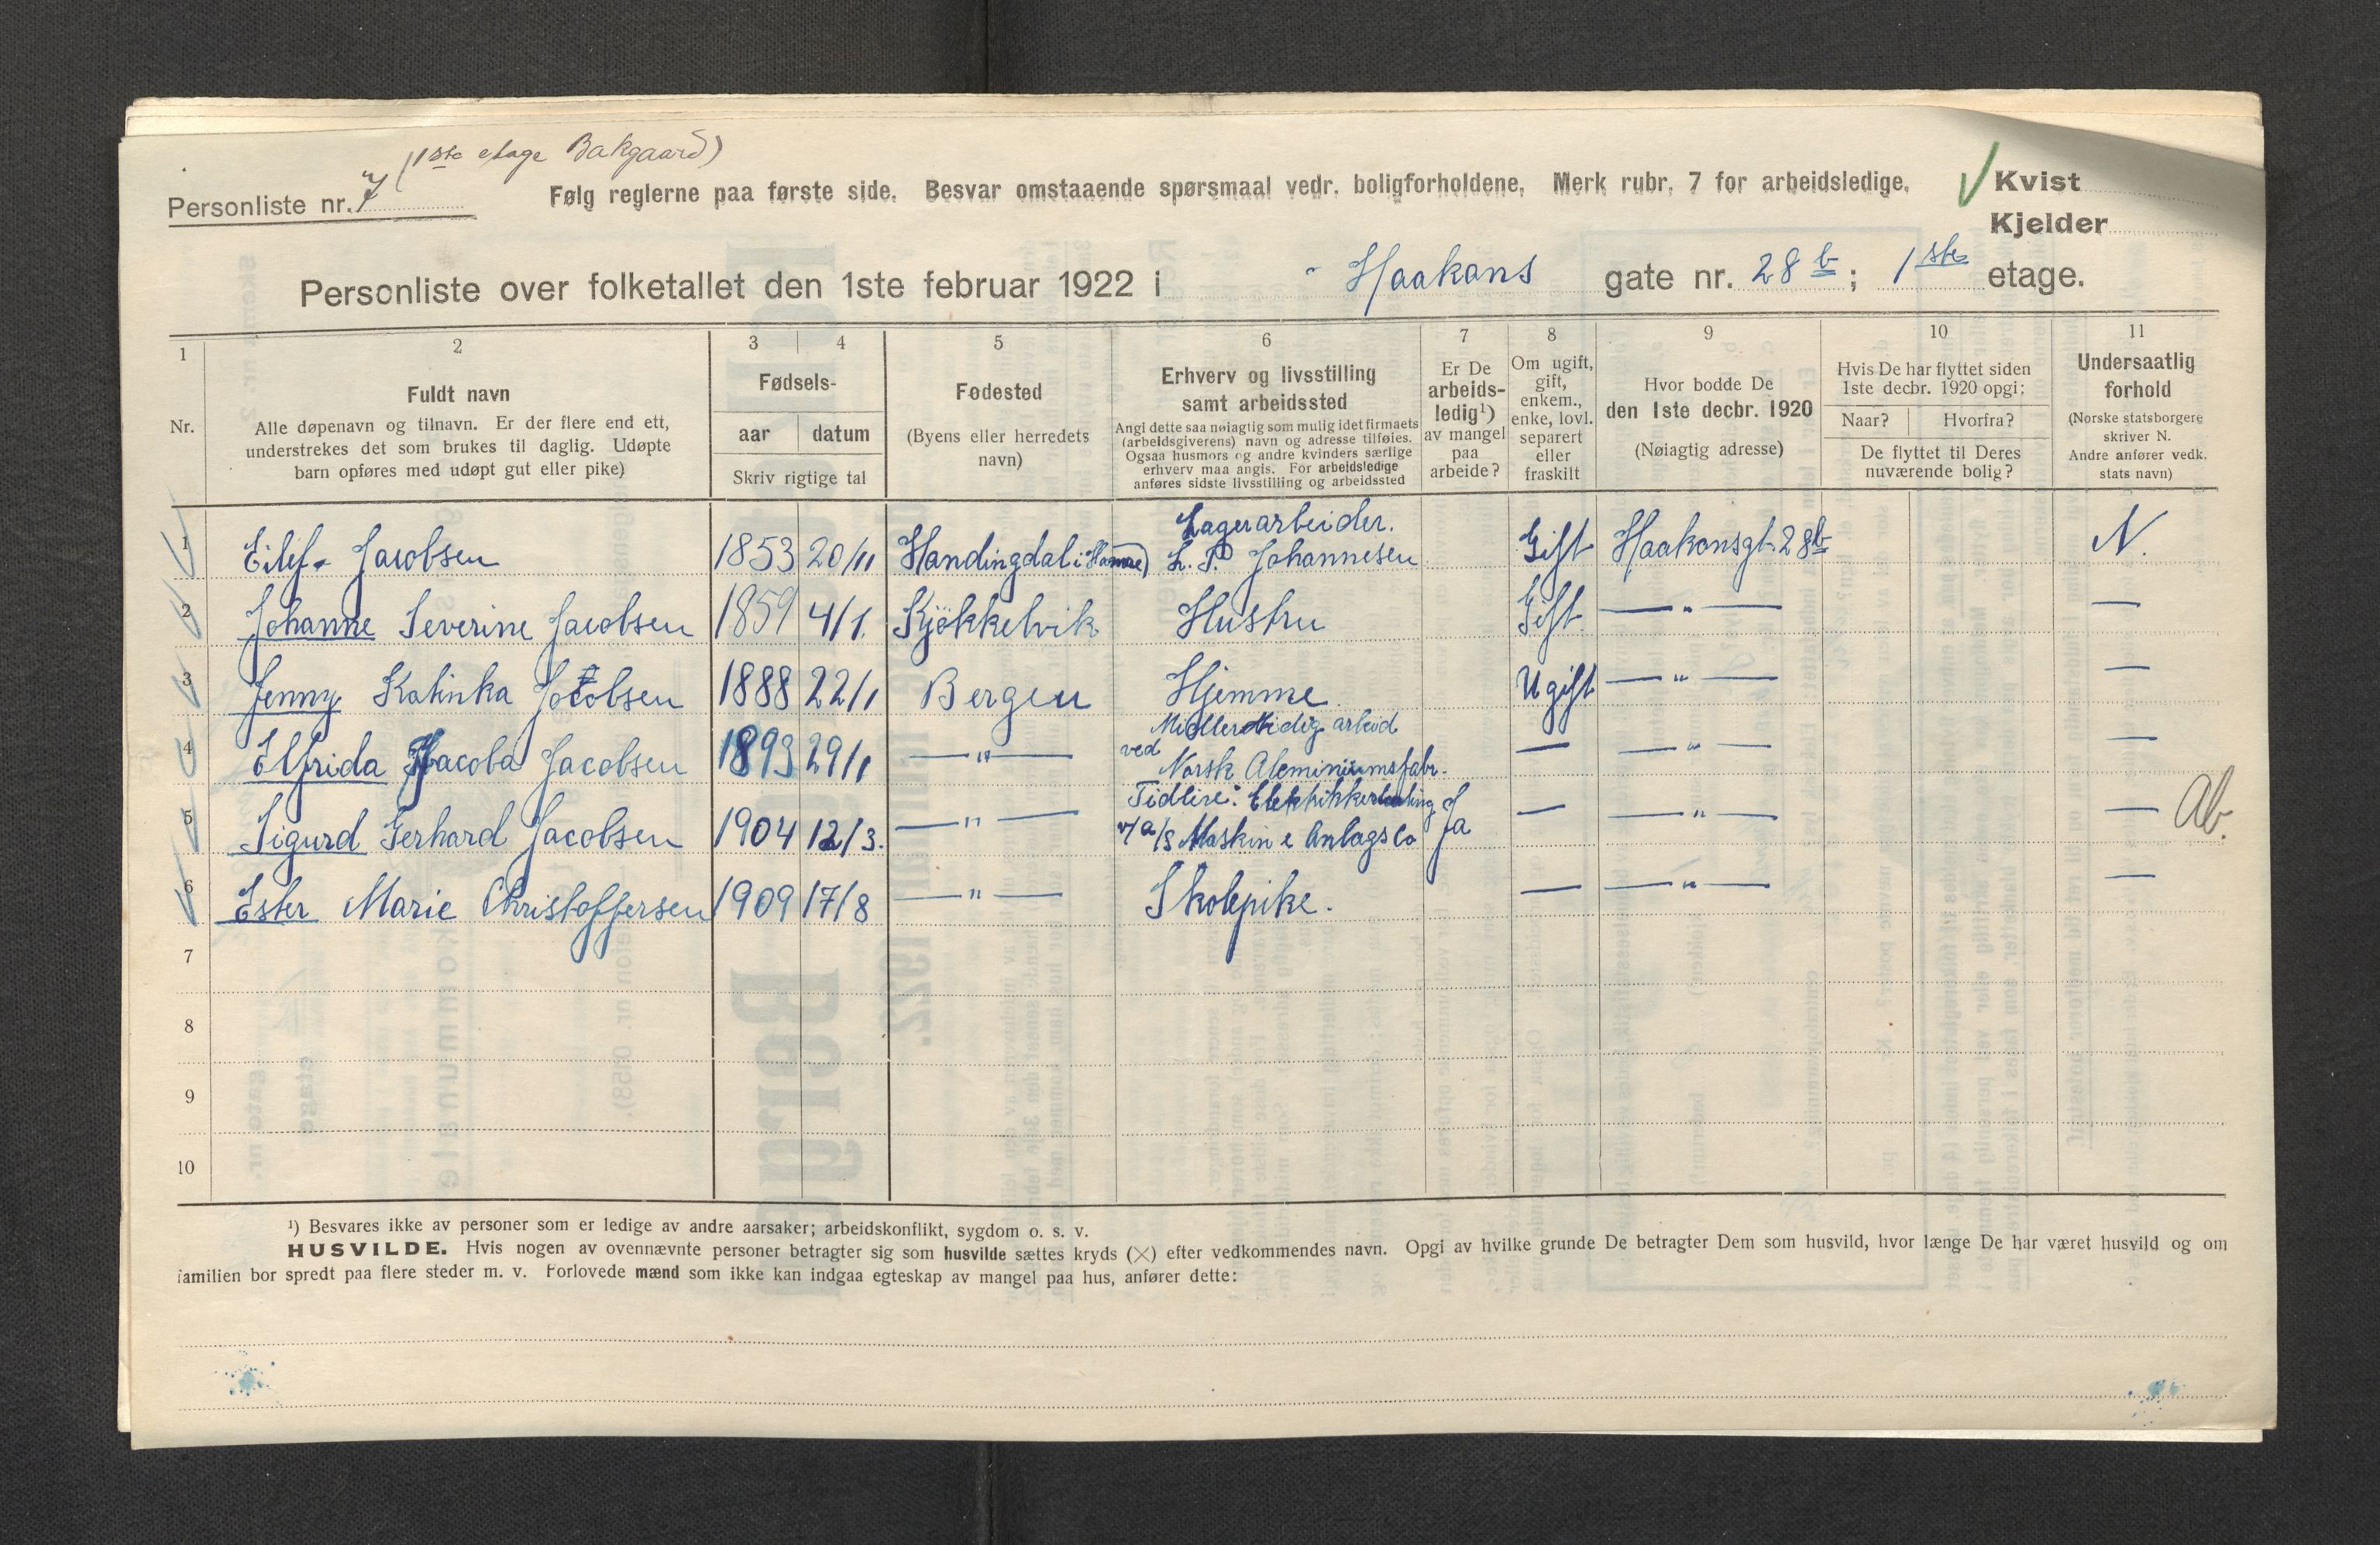 (1ste etage Bakgaard)
Personliste nr. 7
Følg reglerne paa første side. Besvar omstaaende spørsmaal vedr. boligforholdene. Merk rubr. 7 for arbeidsledige.
Kvist
Kjelder
Personliste over folketallet den 1ste februar 1922 i Haakons gate nr. 28 b ; 1ste etage.
1 2 3 4 5 6 7 8 9 10 11
Nr.
Fuldt navn
Alle døpenavn og tilnavn. Er der flere end ett,
understrekes det som brukes til daglig. Udøpte
barn opføres med udøpt gut eller pike)
Fødsels-
aar datum
Skriv rigtige tal
Fødested
(Byens eller herredets
navn)
Erhverv og livsstilling
samt arbeidssted
Angi dette saa nøiagtig som mulig idet firmaets
(arbeidsgiverens) navn og adresse tilføies.
Ogsaa husmors og andre kvinders særlige
erhverv maa angis. For arbeidsledige
anføres sidste livsstilling og arbeidssted
Er De
arbeids-
ledig¹)
av mangel
paa
arbeide?
Om ugift,
gift,
enkem.,
enke, lovl.
separert
eller
fraskilt
Hvor bodde De
den 1ste decbr. 1920
(Nøiagtig adresse)
Hvis De har flyttet siden
1ste decbr. 1920 opgi:
Naar? Hvorfra?
De flyttet til Deres
nuværende bolig?
Undersaatlig
forhold
(Norske statsborgere
skriver N.
Andre anfører vedk.
stats navn)
Lagerarbeider.
1 Eilef. Jacobsen 1853 20/11 Handingdal i Hamre) L. P. Johannesen Gift Haakonsgt. 28b N.
2 Johanne Severine Jacobsen 1859 4/1. Kjökkelvik Hustru Gift. — " — —
3 Jenny Katinka Jacobsen 1888 22/1 Bergen Hjemme Ugift — " — —
Midlertidig arbeid
4 Elfrida Jacoba Jacobsen 1893 29/1 — " — ved Norsk Aleminiumsfabr. — — " — —
Tidlire:
5 Sigurd Gerhard Jacobsen 1904 12/3. — " — v/ a/s Maskin & Anlags Co Ja — — " — — Ab.
6 Ester Marie Christoffersen 1909 17/8 — " — Skolepike. — — " — —
7
8
9
10
¹) Besvares ikke av personer som er ledige av andre aarsaker; arbeidskonflikt, sygdom o. s. v.
HUSVILDE. Hvis nogen av ovennævnte personer betragter sig som husvilde sættes kryds (×) efter vedkommendes navn. Opgi av hvilke grunde De betragter Dem som husvild, hvor længe De har været husvild og om
familien bor spredt paa flere steder m. v. Forlovede mænd som ikke kan indgaa egteskap av mangel paa hus, anfører dette: